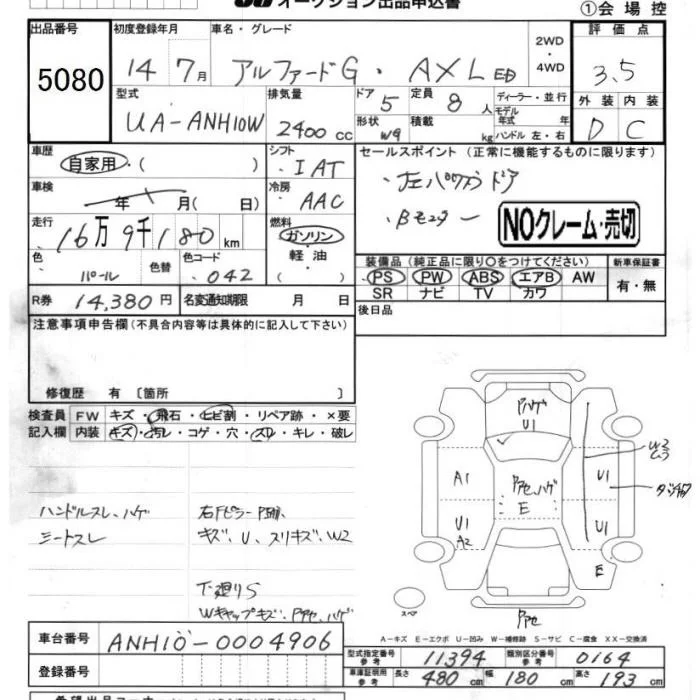 オークション出品申込書
①会場控
出品番号 初度登録年月 車名・グレード 2WD・4WD 評価点
5080 14 7月 アルファードG・AXL 3.5
型式 排気量 ドア 5 定員 8人 ディーラー・並行
モデル年式 年
UA-ANH10W 2400cc 形状 W9 積載 kg ハンドル 左・右
外装 内装
D C
車歴 自家用・( )
シフト ・IAT
車検 年 月(日)
冷房 ・AAC
走行 16万9千180km
燃料 ガソリン・軽油・( )
色 パール 色替 色コード ・042
R券 14,380円 名変通知期限 月 日
セールスポイント(正常に機能するものに限ります)
・左パワスラドア
・Bモニター
NOクレーム・売切
装備品(純正品に限り○をつけてください) 新車保証書
PS PW ABS エアB AW 有・無
SR ナビ TV カワ
後日品
注意事項申告欄(不具合内容等は具体的に記入して下さい)
修復歴 有 〔箇所 〕
検査員記入欄 FW キズ・飛石・ヒビ割・リペア跡・×要
内装 キズ・汚レ・コゲ・穴・スレ・キレ・破レ
ハンドルスレ、ハゲ
シートスレ
キズ、U、スリキズ、W2
下廻りS
Wキャップキズ、Pアセ、ハゲ
Pハゲ
U1
A1
Pアセ、ハゲ
E
U1
U1
A2
U1
E
Pアセ
スペア
A−キズ E−エクボ U−凹み W−補修跡 S−サビ C−腐食 XX−交換済
車台番号 ANH10-0004906
登録番号
型式指定番号 参考 11394 類別区分番号 参考 0164
車庫証明用 参考 長さ 480cm 幅 180cm 高さ 193cm